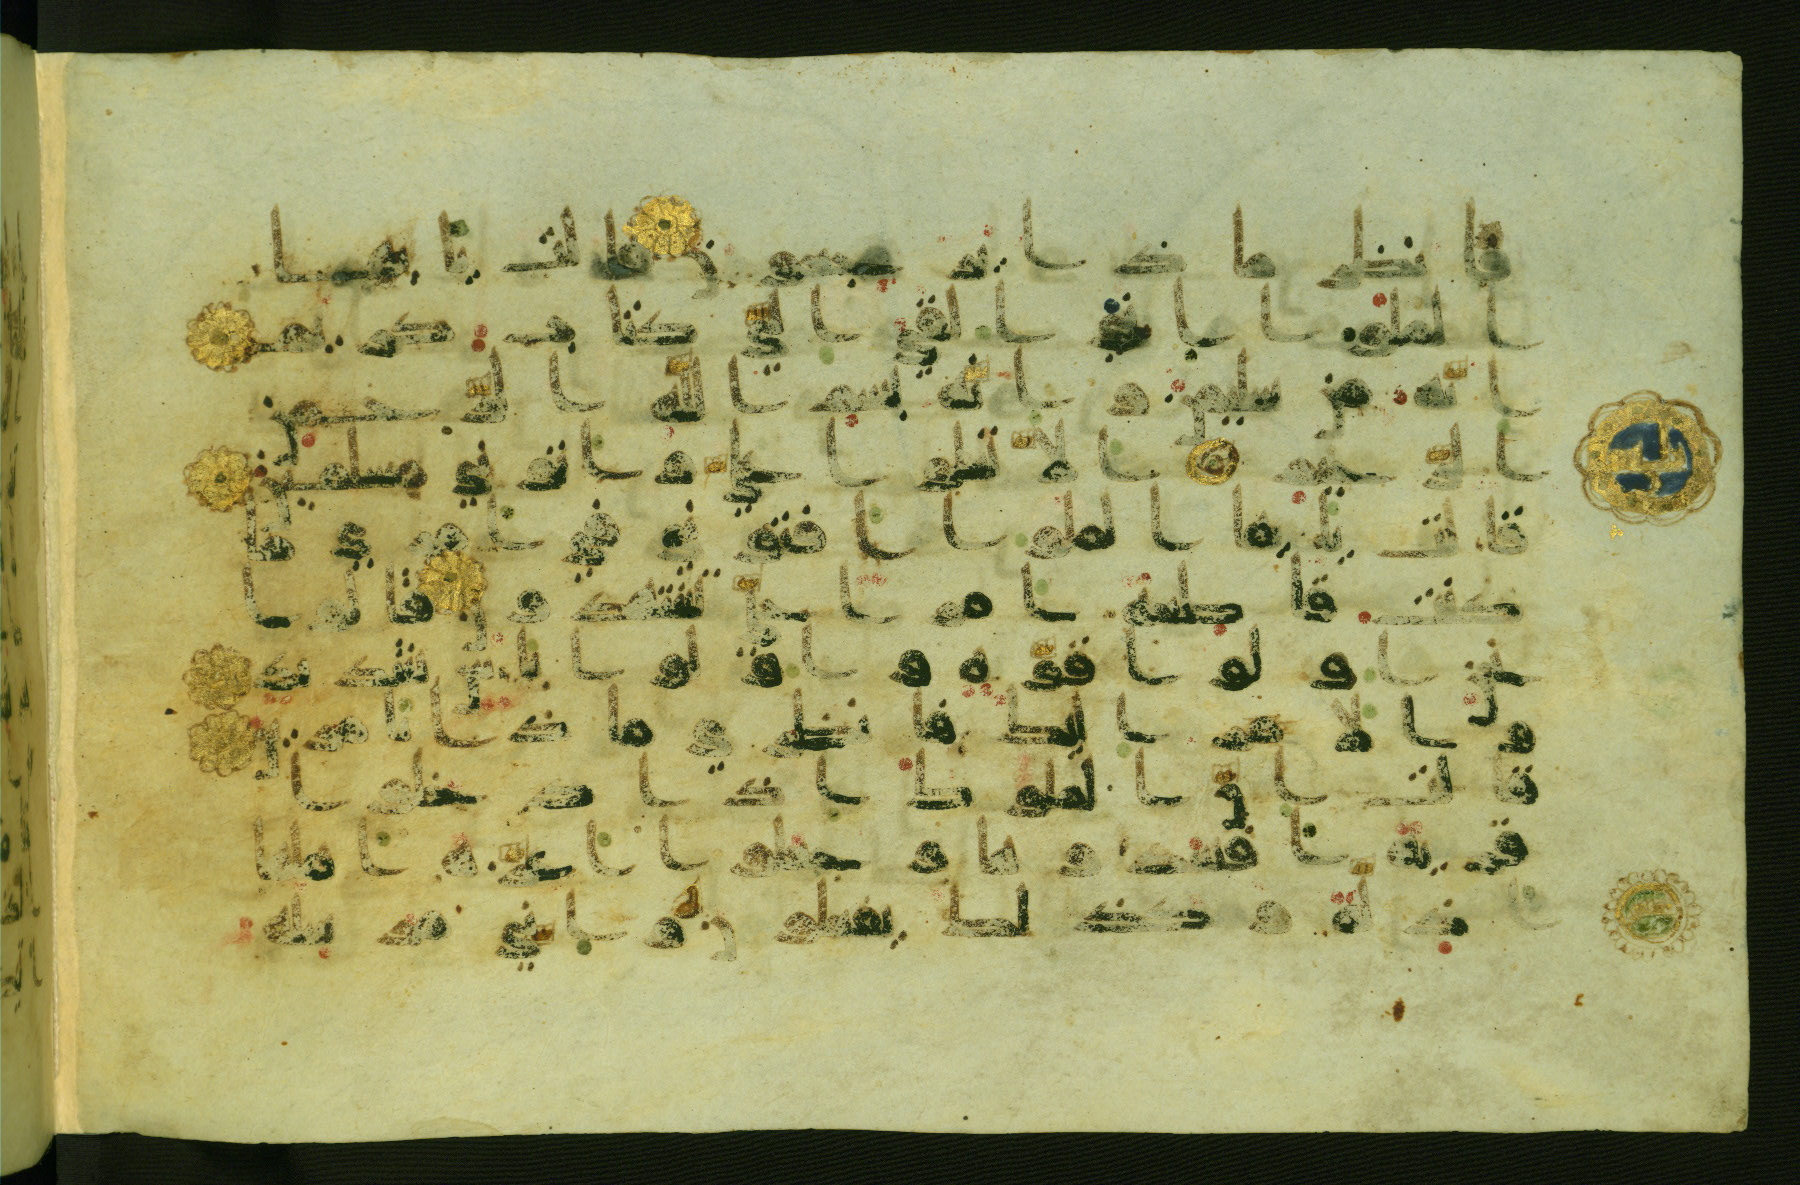 فانظر ماذا يرجعون قالت يايها
الملوا اني القي الي كتاب كريم
انه من سليمن وانه بسم الله الرحمن
الرحيم الا تعلوا علي واتوني مسلمين
قالت يايها الملوا افتوني في امري ما
كنت قاطعة امرا حتى تشهدون قالوا
نحن اولوا قوة واولوا باس شديد
والامر اليك فانظري ماذا تامرين
قالت ان الملوك اذا دخلوا
قرية افسدوها وجعلوا اعزة اهلها
اذلة وكذلك يفعلون واني مرسلة